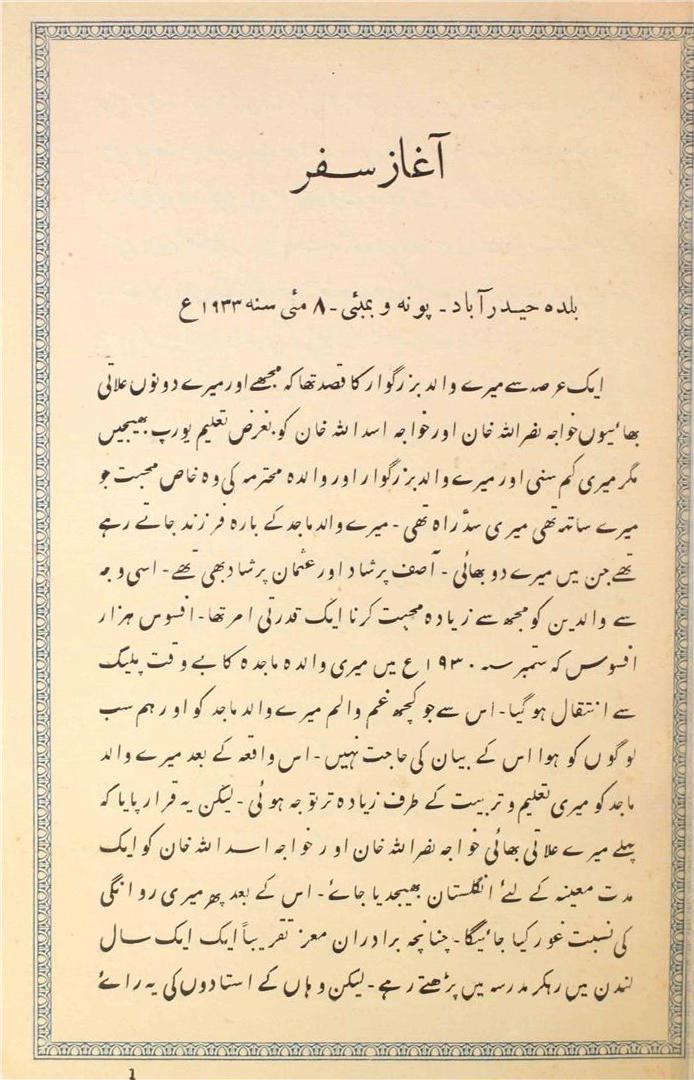 آغاز سفر
بلدہ حیدرآباد ۔ پونہ و بمبئی ۔ ۸ مئی سنہ ۱۹۳۳ع
ایک عرصہ سے میرے والد بزرگوار کا قصد تھا کہ مجھے اور میرے دونوں علاتی
بھائیوں خواجہ نصر اللہ خان اور خواجہ اسد اللہ خان کو بغرض تعلیم یورپ بھیجیں
مگر میری کم سنی اور میرے والد بزرگوار اور والدہ محترمہ کی وہ خاص محبت جو
میرے ساتھ تھی میری سدّ راہ تھی ۔ میرے والد ماجد کے بارہ فرزند جاتے رہے
تھے جن میں میرے دو بھائی ۔ آصف پرشاد اور عثمان پرشاد بھی تھے ۔ اسی وجہ
سے والدین کو مجھ سے زیادہ محبت کرنا ایک قدرتی امر تھا ۔ افسوس ہزار
افسوس کہ ستمبر سنہ ۱۹۳۰ع میں میری والدہ ماجدہ کا بے وقت پلیگ
سے انتقال ہو گیا ۔ اس سے جو کچھ غم والم میرے والد ماجد کو اور ہم سب
لوگوں کو ہوا اس کے بیان کی حاجت نہیں ۔ اس واقعہ کے بعد میرے والد
ماجد کو میری تعلیم و تربیت کے طرف زیادہ تر توجہ ہوئی ۔ لیکن یہ قرار پایا کہ
پہلے میرے علاتی بھائی خواجہ نصر اللہ خان اور خواجہ اسد اللہ خان کو ایک
مدت معینہ کے لئے انگلستان بھیجدیا جائے ۔ اس کے بعد پھر میری روانگی
کی نسبت غور کیا جائیگا ۔ چنانچہ برادران معز تقریباً ایک ایک سال
لندن میں رہکر مدرسہ میں پڑھتے رہے ۔ لیکن وہاں کے استادوں کی یہ رائے
1